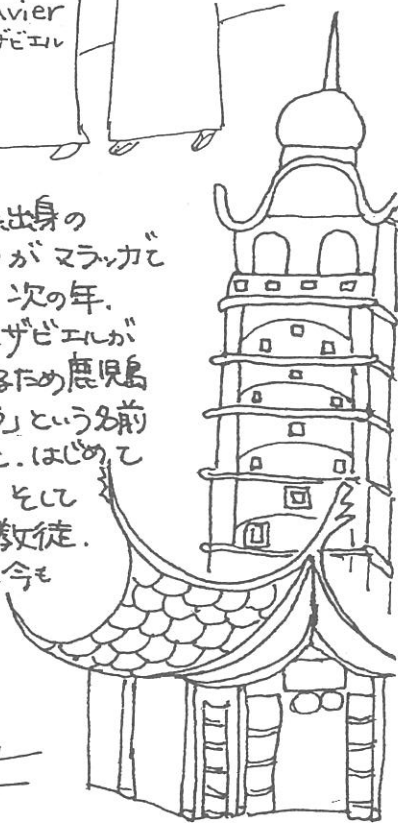 avier
ザビエル
出身の
がマラッカで
次の年.
ザビエルが
るため鹿児島
」という名前
と.はじめて
そして
教徒.
今も